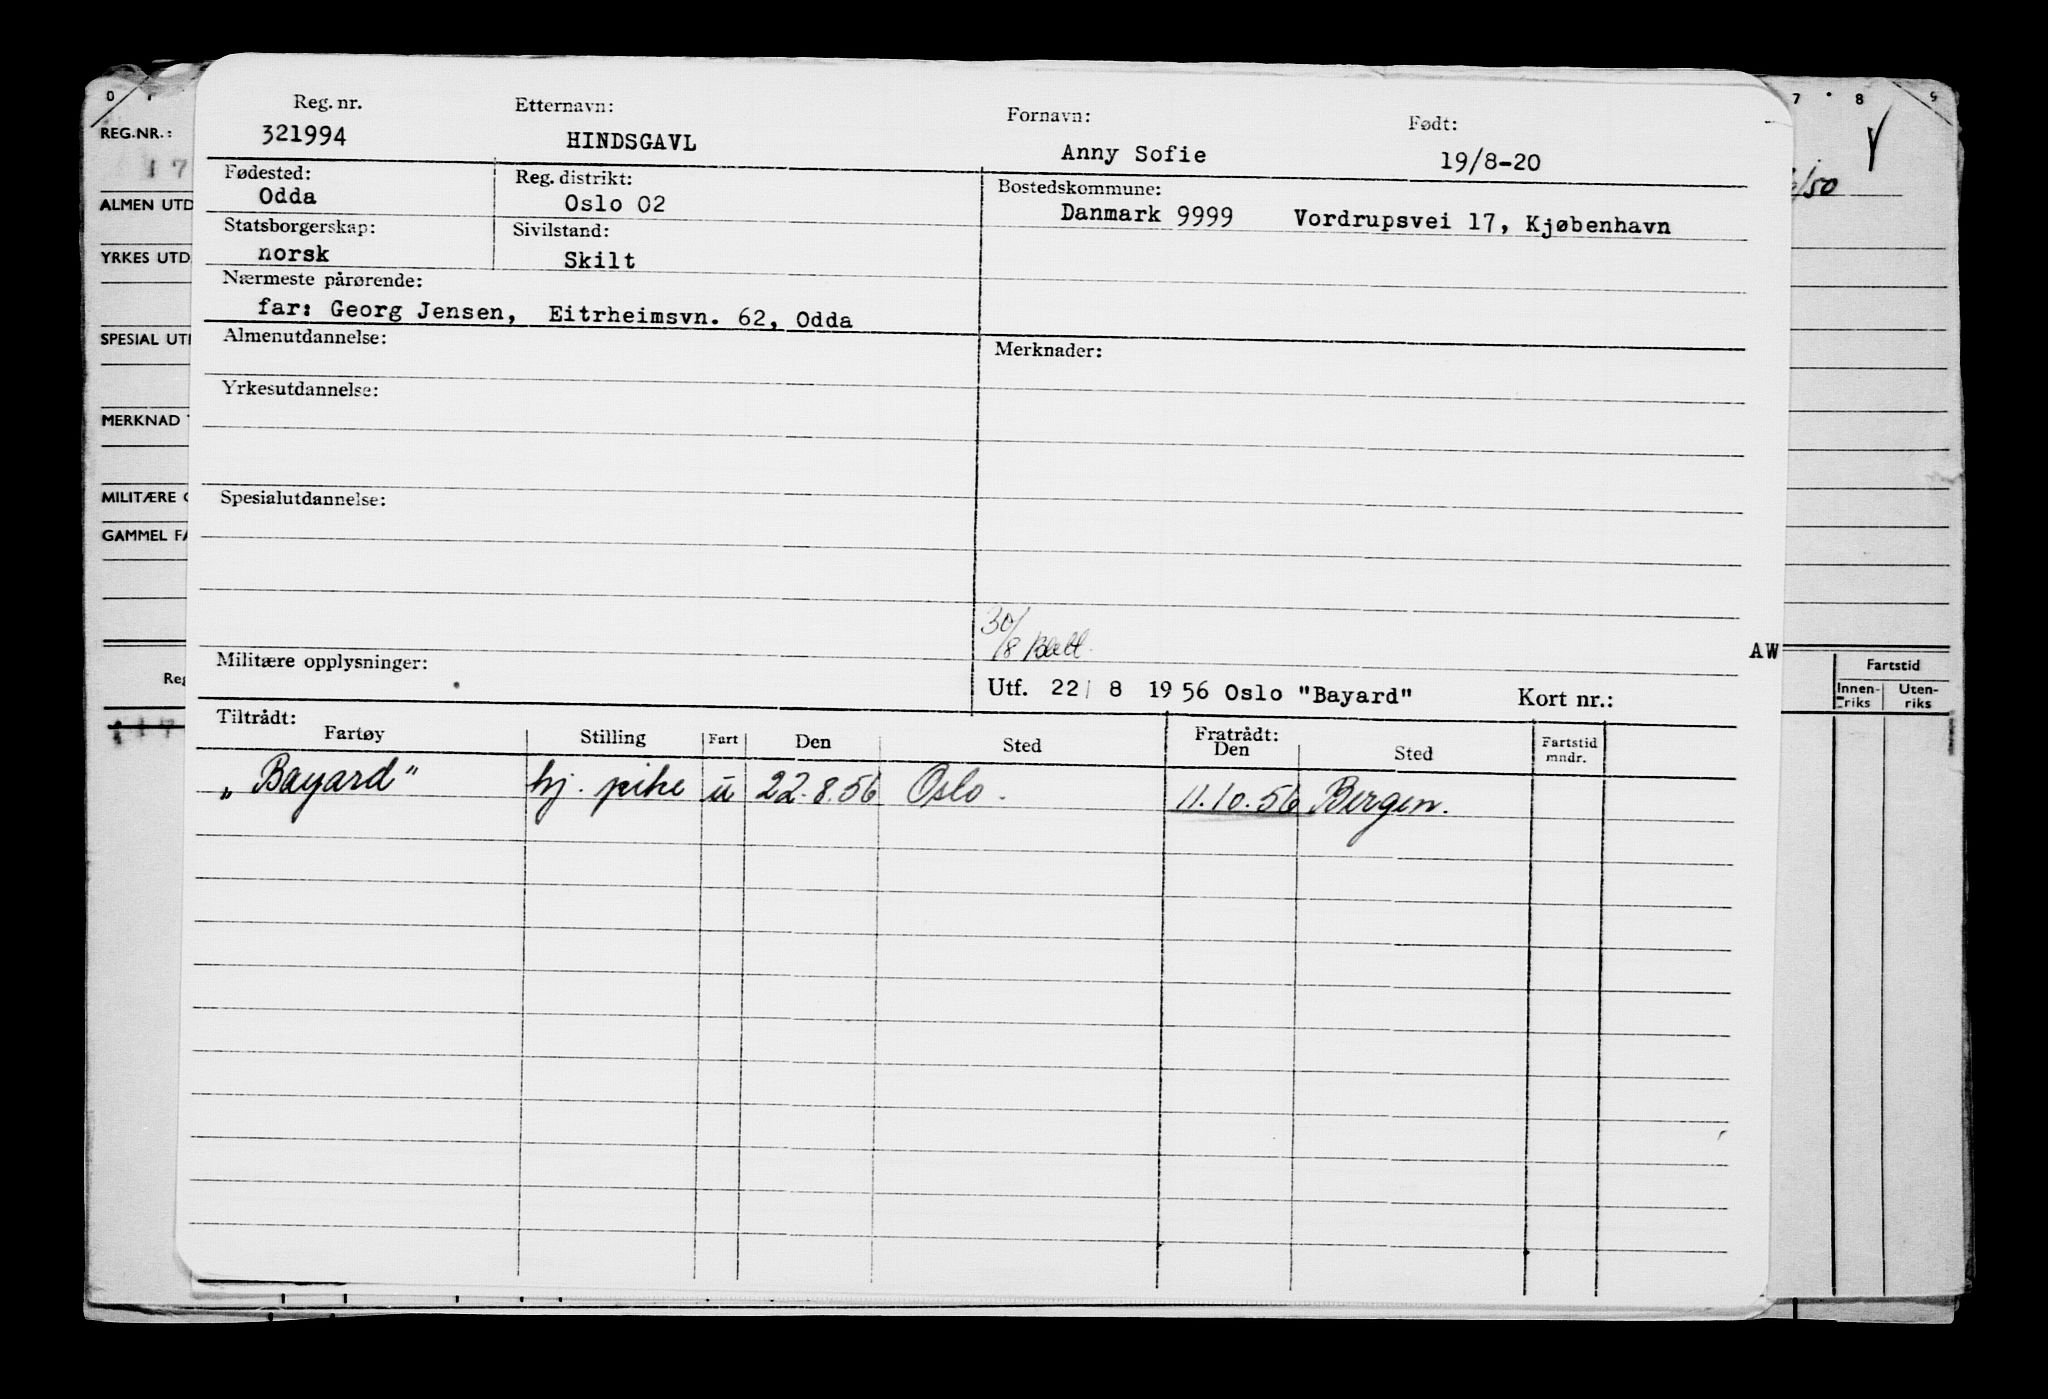 0 1
REG.NR.:
17
ALMEN UTD
YRKES UTD
SPESIAL UT
MERKNAD
MILITÆRE
GAMMEL FA
Reg
Reg. nr. Etternavn: Fornavn: Født:
321994 HINDSGAVL Anny Sofie 19/8-20
Fødested: Reg. distrikt: Bostedskommune:
Odda Oslo 02 Danmark 9999 Vordrupsvei 17, Kjøbenhavn
Statsborgerskap: Sivilstand:
norsk Skilt
Nærmeste pårørende:
far: Georg Jensen, Eitrheimsvn. 62, Odda
Almenutdannelse: Merknader:
Yrkesutdannelse:
Spesialutdannelse:
30/8
Militære opplysninger:
Utf. 22/ 8 1956 Oslo "Bayard" Kort nr.:
Tiltrådt: Fratrådt:
Fartøy Stilling Fart Den Sted Den Sted Fartstid mndr.
„Bayard" hj. pike u 22.8.56 Oslo. 11.10.56 Bergen.
7 8 9
/50
AW
Fartstid
Innen-riks Uten-riks